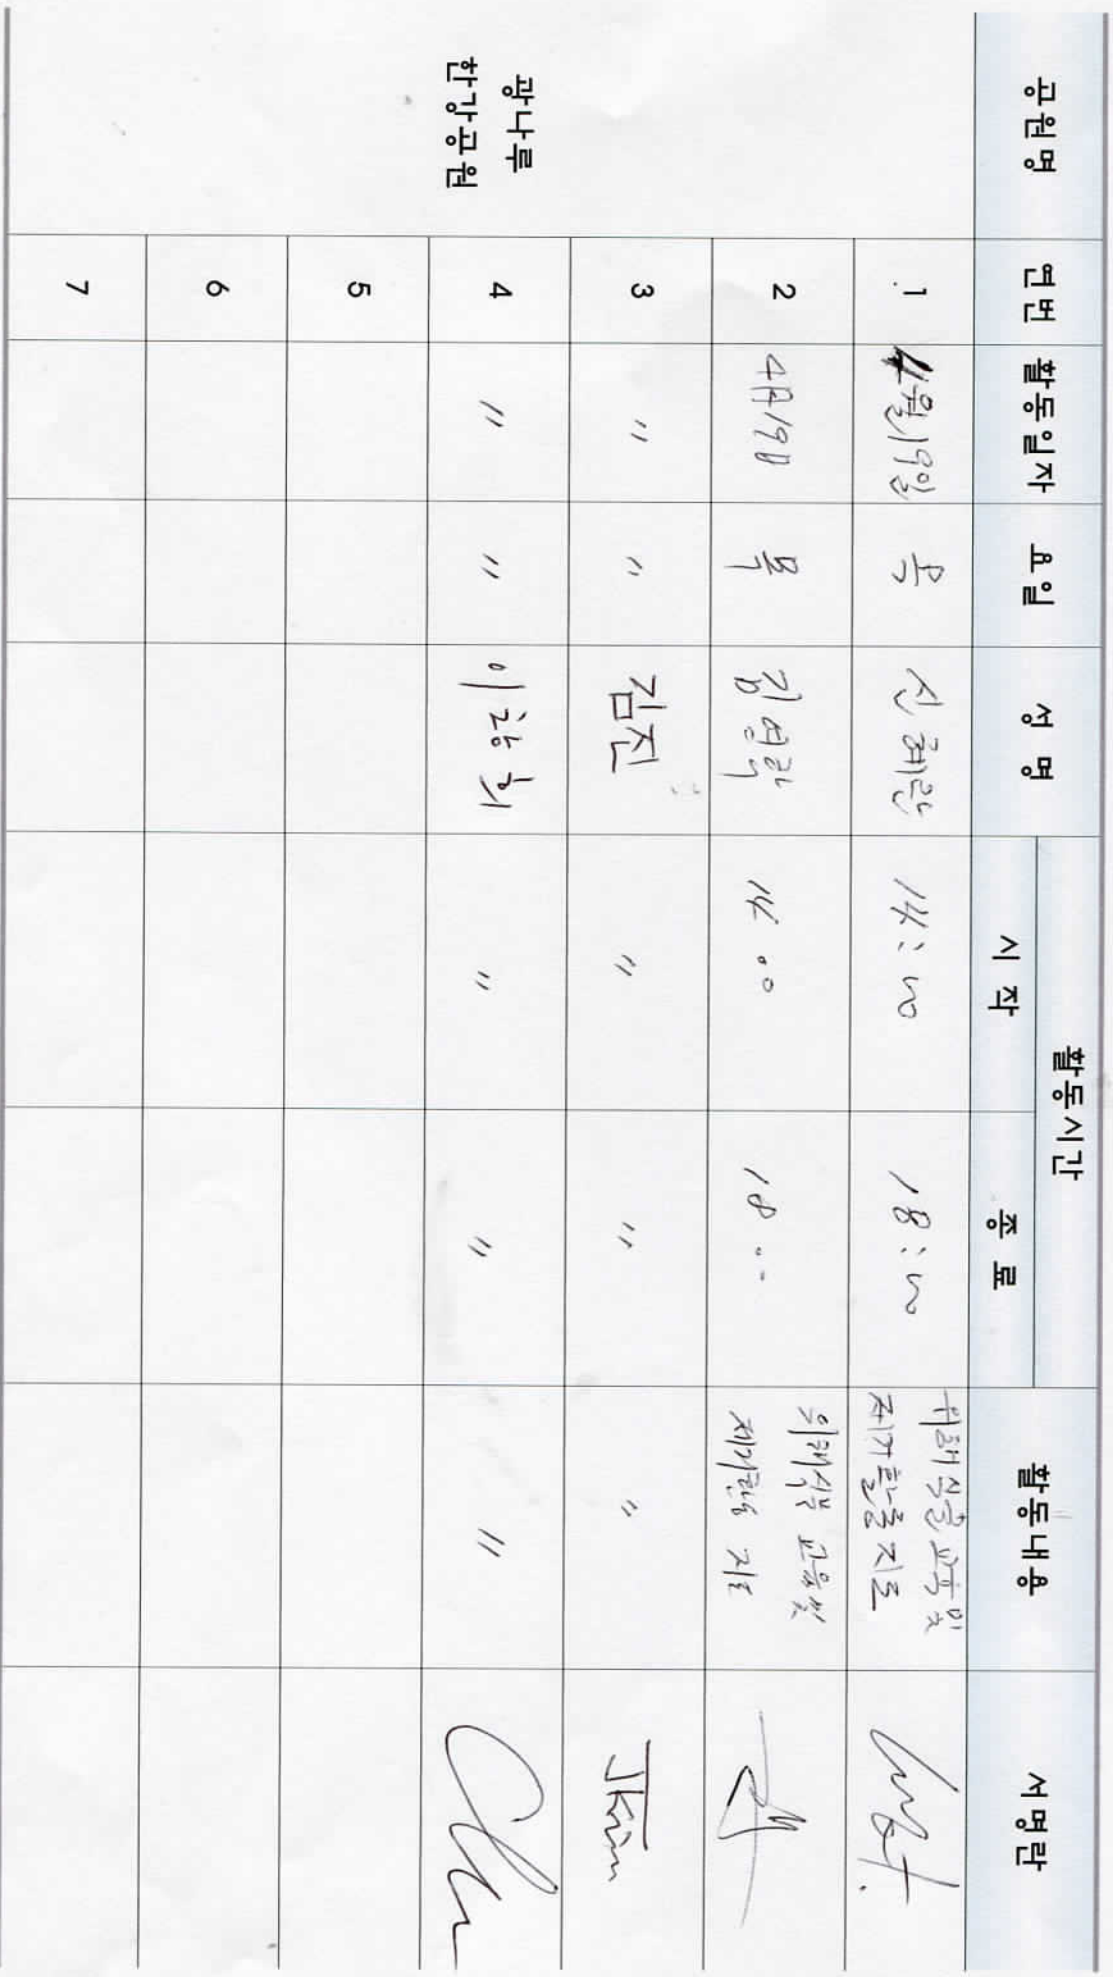 공원명 연번 활동일자 요일 성명 활동시간 활동내용 서명란
시작 종료
광나루
한강공원
1 4월19일 목 신혜란 14:00 18:00 위해식물교육및
제거활동지도
2 4月19日 목 14 00 18 위해식물 교육및
제거활동 지도
3 〃 〃 김진 〃 〃 〃 JKim
4 〃 〃 〃 〃 〃
5
6
7